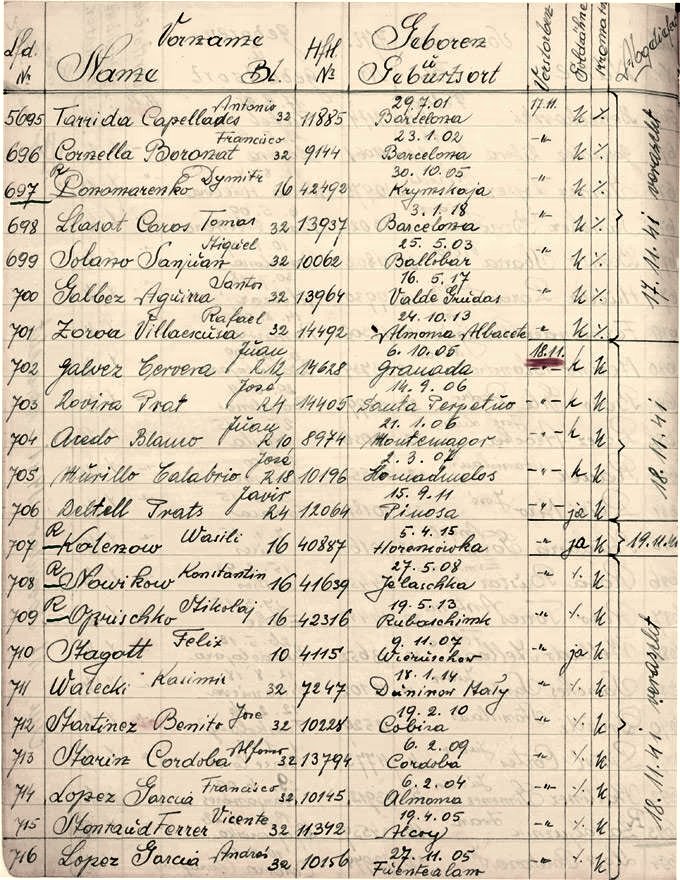 Lfd. Nr Name Vorname Bl. Hftl. Nr Geboren u Geburtsort Verstorben Goldzähne Kromator
5695 Tarrida Capellades Antonio 32 11885 29.7.01 Barcelona 17.11. k %
696 Cornella Boronat Francisco 32 9144 23.1.02 Barcelona -"- k %
697 R Ponomarenko Dymitr 16 42492 30.10.05 Krymskaja -"- k %
698 Llasat Caros Tomas 32 13937 3.1.18 Barcelona -"- k %
699 Solano Sanjuan Miguel 32 10062 25.5.03 Ballobar -"- k %
700 Galbez Aguirra Santos 32 13964 16.5.17 -"- k %
701 Zoroa Villaescusa Rafael 32 14492 24.10.13 Almoma Albacete -"- k %
17.11.41 verascht
702 Galvez Cervera Juan R12 14628 6.10.05 Granada 18.11. k k
703 Rovira Prat José R4 14405 14.9.06 Santa Perpetuo -"- k k
704 Aredo Blanco Juan R10 8974 21.1.06 Montemagor -"- k k
705 Murillo Calabrio José R18 10196 -"- k k
706 Deltell Prats Javir R4 12064 15.9.11 Pinosa -"- ja k
18.11.41
707 R Kolenow Wasili 16 40887 5.4.15 Horenkowka -"- ja k 19.11.41
708 R Nowikow Konstantin 16 41639 27.5.08 Jelaschka -"- % k
709 R Oprischko Mikolaj 16 42316 19.5.13 Rubaschink -"- % k
710 Magott Felix 10 4115 9.11.07 Wieruschow -"- ja k
711 Walecki Kasimir 32 7247 18.1.14 Duninow Maly -"- % k
712 Martinez Benito Jose 32 10228 19.2.10 Cobira -"- % k
713 Marin Cordoba Alfonso 32 13794 6.2.09 Cordoba -"- % k
714 Lopez Garcia Francisco 32 10145 6.2.04 Almoma -"- % k
715 Montaud Ferrer Vicente 32 11342 19.4.05 Alcoy -"- % k
716 Lopez Garcia Andrés 32 10156 27.11.05 Fuentealam -"- % k
18.11.41 verascht